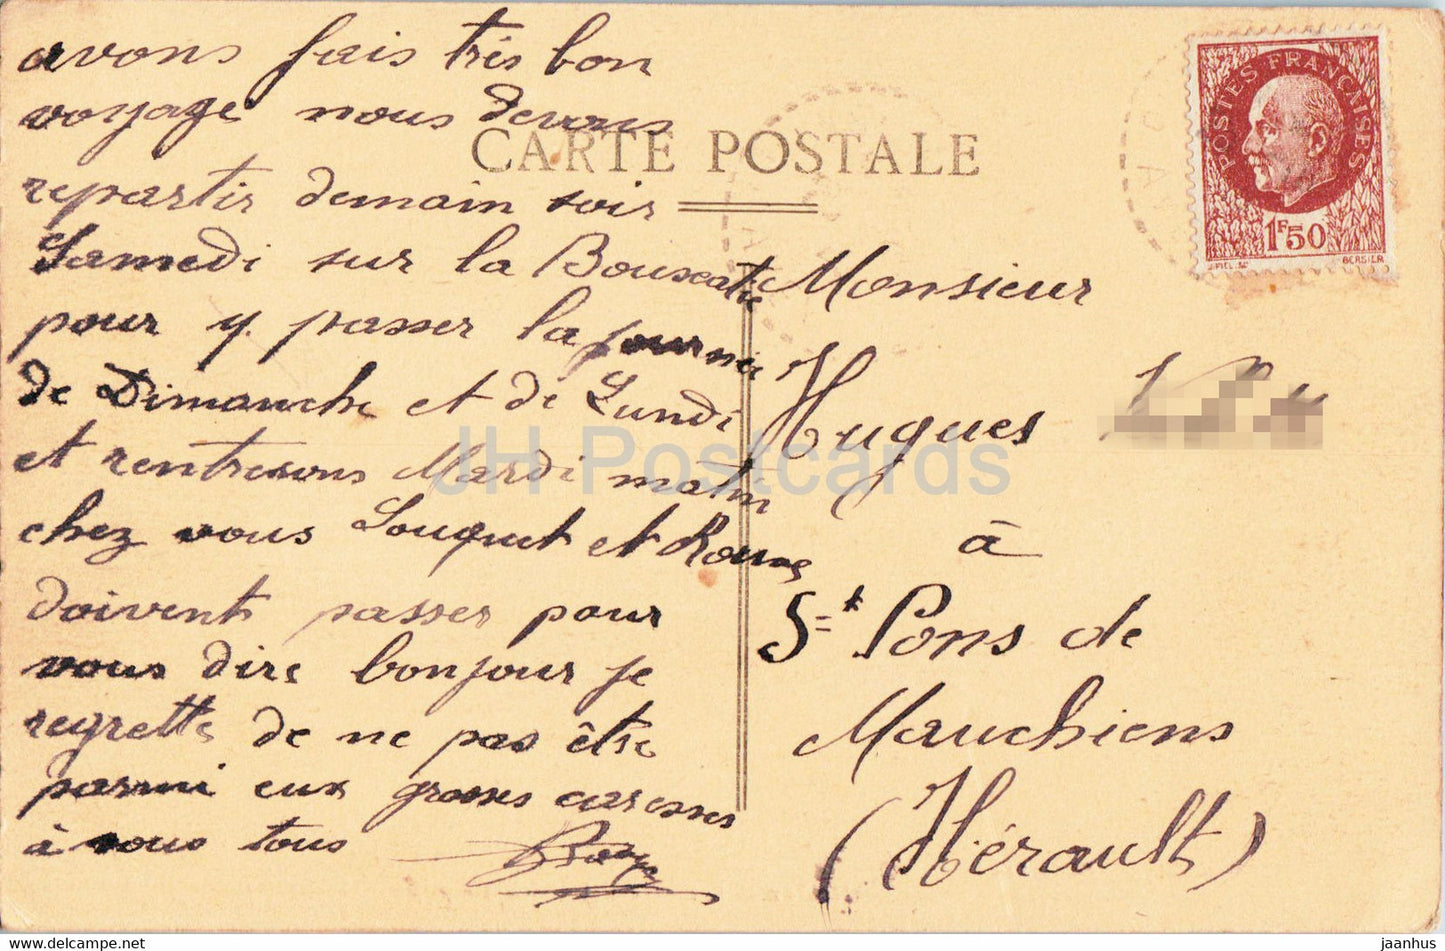 avons fais très bon
voyage nous devons
repartir demain soir
Samedi sur la Bouscatie
pour y passer la journée
de Dimanche et de Lundi
et rentresons Mardi matin
chez vous Souquet et
doivent passer pour
vous dire bonjour je
regrette de ne pas être
parmi eux grosses caresses
à vous tous
CARTE POSTALE
POSTES FRANÇAISES
1F50
BERSIER
Monsieur
Hugues
à
St Pons de
Mauchiens
(Hérault)
JH Postcards
jaanhus - https://www.delcampe.net